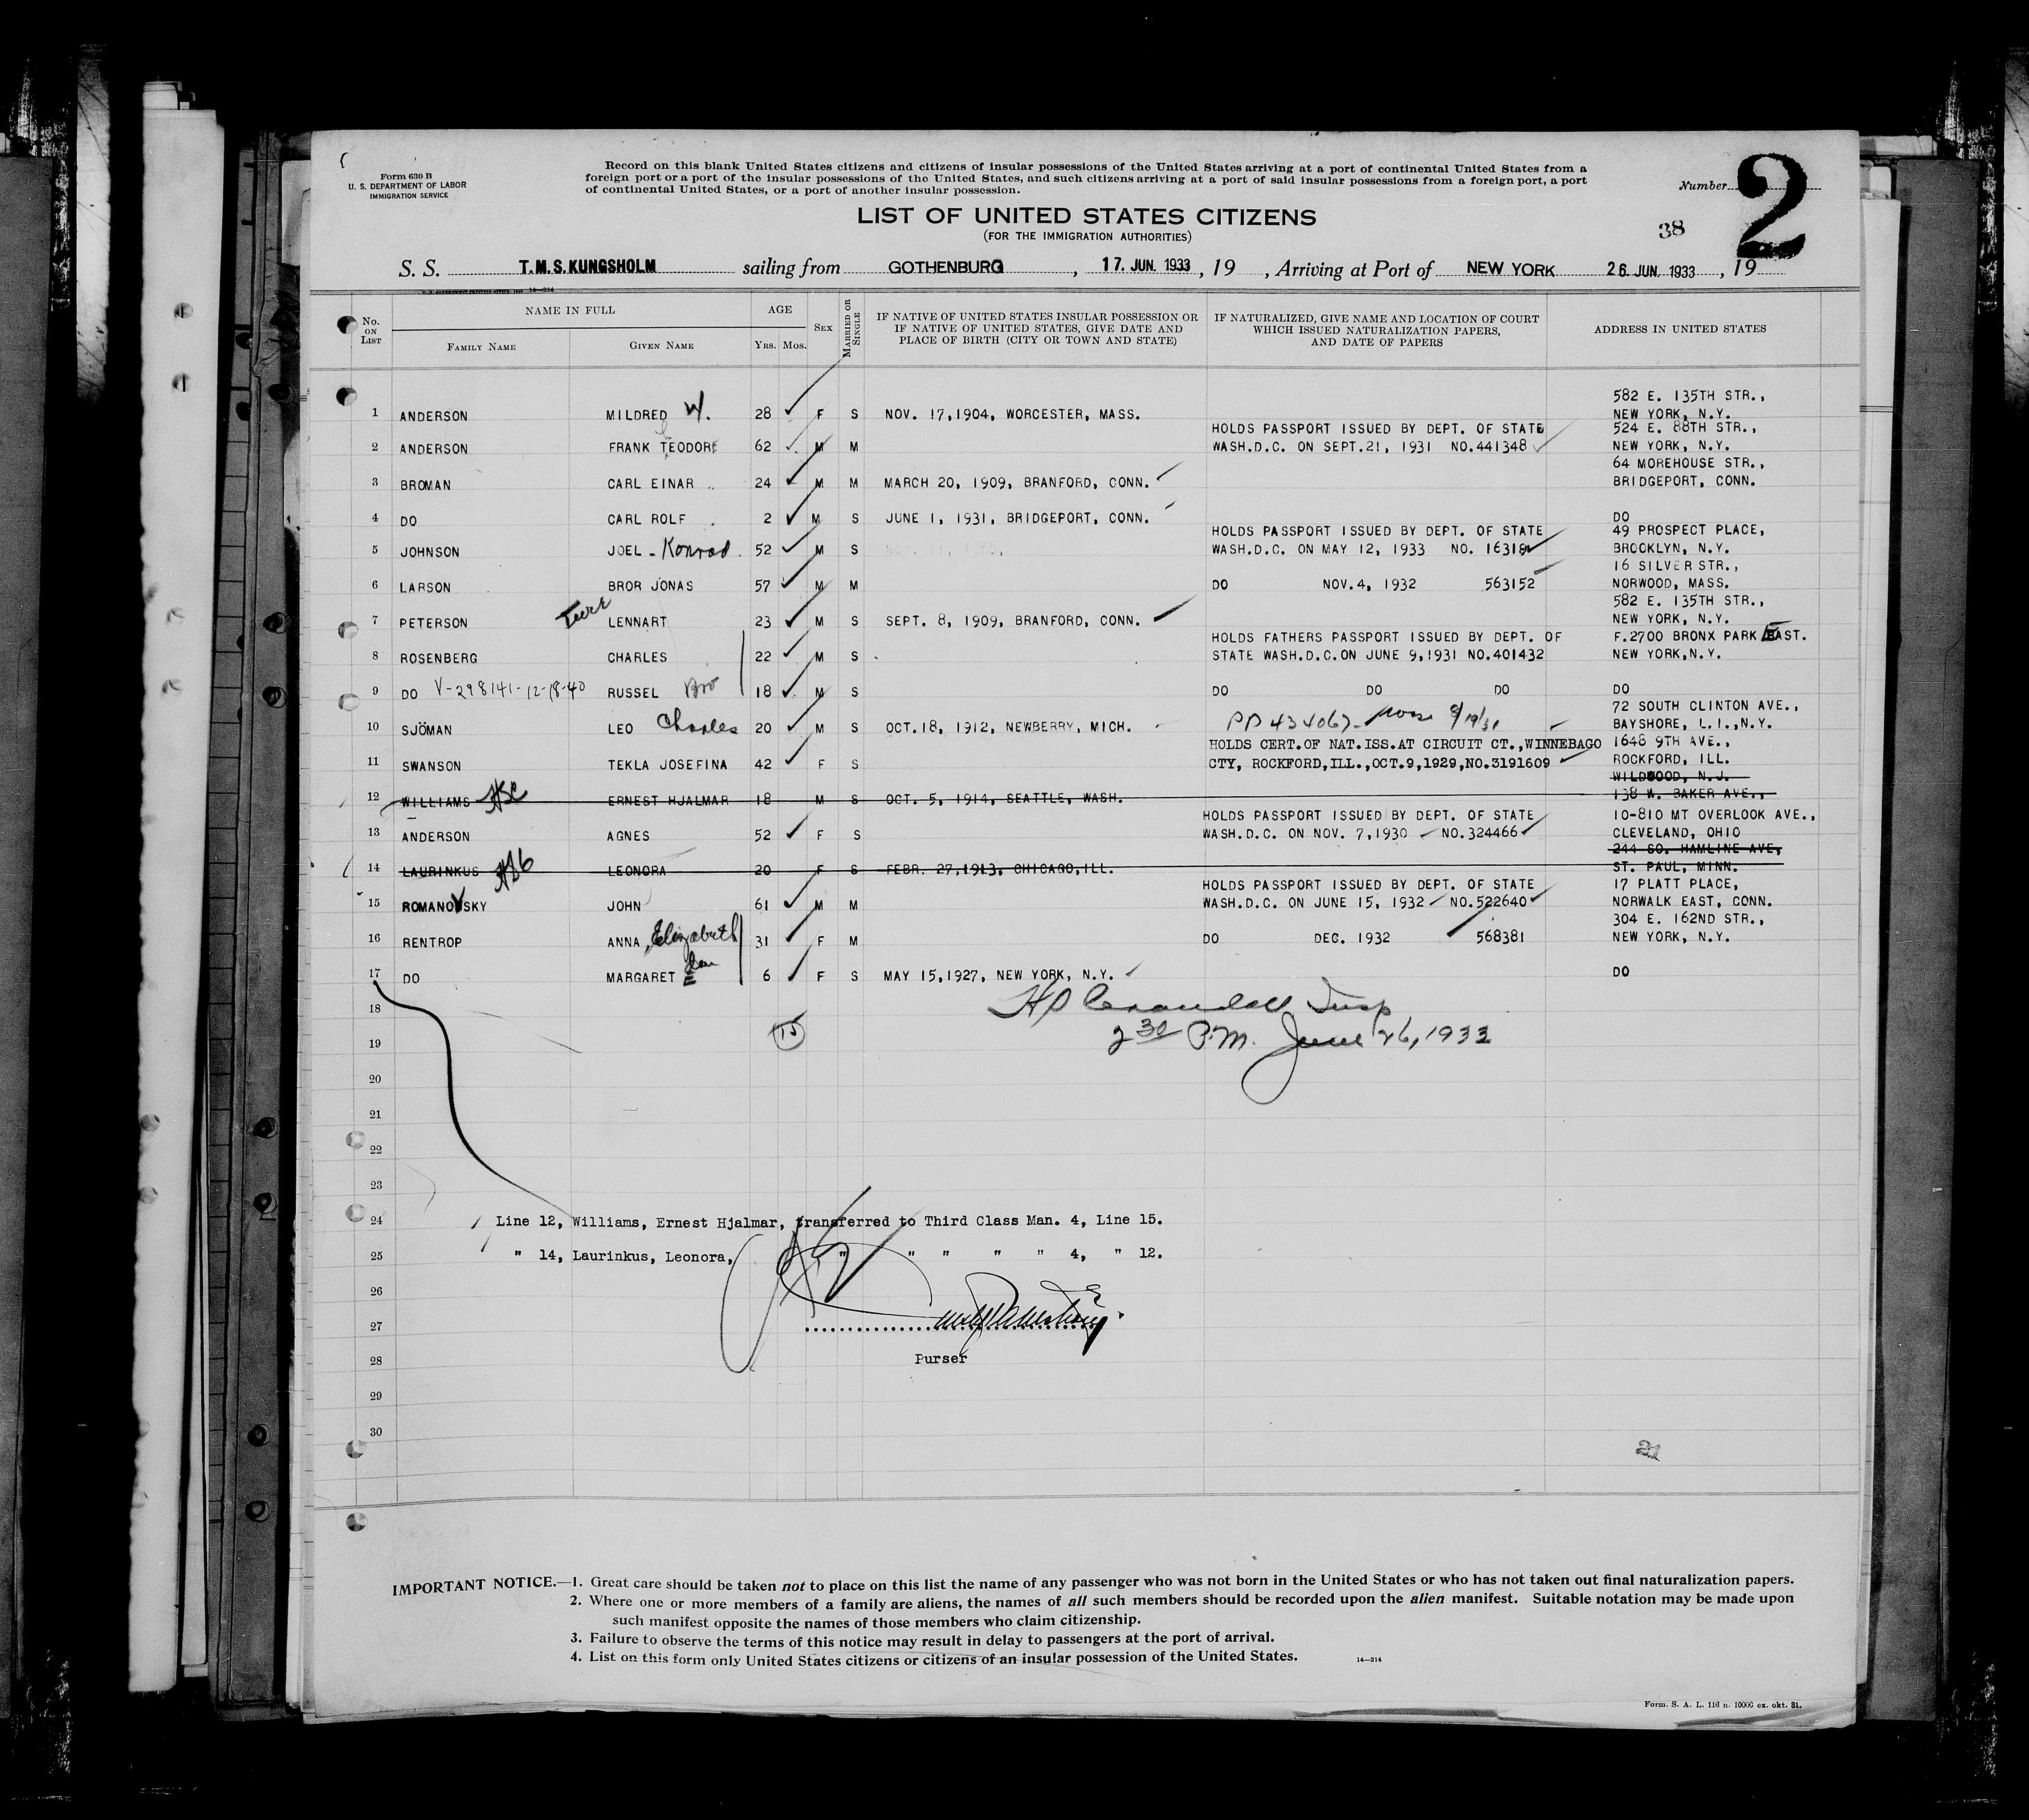 Form 630 B
U. S. DEPARTMENT OF LABOR
IMMIGRATION SERVICE
Record on this blank United States citizens and citizens of insular possessions of the United States arriving at a port of continental United States from a
foreign port or a port of the insular possessions of the United States, and such citizens arriving at a port of said insular possessions from a foreign port, a port
of continental United States, or a port of another insular possession.
Number 2
LIST OF UNITED STATES CITIZENS
(FOR THE IMMIGRATION AUTHORITIES)
38
S. S. T.M.S. KUNGSHOLM sailing from GOTHENBURG, 17. JUN. 1933, 19 , Arriving at Port of NEW YORK 26. JUN. 1933, 19
No. ON LIST
NAME IN FULL
FAMILY NAME GIVEN NAME
AGE
YRS. MOS.
SEX
MARRIED OR SINGLE
IF NATIVE OF UNITED STATES INSULAR POSSESSION OR
IF NATIVE OF UNITED STATES, GIVE DATE AND
PLACE OF BIRTH (CITY OR TOWN AND STATE)
IF NATURALIZED, GIVE NAME AND LOCATION OF COURT
WHICH ISSUED NATURALIZATION PAPERS,
AND DATE OF PAPERS
ADDRESS IN UNITED STATES
582 E. 135TH STR.,
1 ANDERSON MILDRED W. 28 F S NOV. 17,1904, WORCESTER, MASS. NEW YORK, N.Y.
HOLDS PASSPORT ISSUED BY DEPT. OF STATE 524 E. 88TH STR.,
2 ANDERSON FRANK TEODORE 62 M M WASH.D.C. ON SEPT.21, 1931 NO.441348 NEW YORK, N.Y.
64 MOREHOUSE STR.,
3 BROMAN CARL EINAR 24 M M MARCH 20, 1909, BRANFORD, CONN. BRIDGEPORT, CONN.
4 DO CARL ROLF 2 M S JUNE 1, 1931, BRIDGEPORT, CONN. DO
HOLDS PASSPORT ISSUED BY DEPT. OF STATE 49 PROSPECT PLACE,
5 JOHNSON JOEL - Konrad. 52 M S WASH.D.C. ON MAY 12, 1933 NO. 16318 BROOKLYN, N.Y.
16 SILVER STR.,
6 LARSON BROR JONAS 57 M M DO NOV.4, 1932 563152 NORWOOD, MASS.
582 E. 135TH STR.,
7 PETERSON Ture LENNART 23 M S SEPT. 8, 1909, BRANFORD, CONN. NEW YORK, N.Y.
HOLDS FATHERS PASSPORT ISSUED BY DEPT. OF F.2700 BRONX PARK EAST.
8 ROSENBERG CHARLES 22 M S STATE WASH.D.C.ON JUNE 9,1931 NO.401432 NEW YORK,N.Y.
9 DO V-298141-12-18-40 RUSSEL Bro 18 M S DO DO DO DO
72 SOUTH CLINTON AVE.,
10 SJÖMAN LEO Charles 20 M S OCT.18, 1912, NEWBERRY, MICH. BAYSHORE, L.I.,N.Y.
HOLDS CERT.OF NAT.ISS.AT CIRCUIT CT.,WINNEBAGO 1648 9TH AVE.,
11 SWANSON TEKLA JOSEFINA 42 F S CTY, ROCKFORD,ILL.,OCT.9,1929,NO.3191609 ROCKFORD, ILL.
WILDWOOD, N.J.
12 WILLIAMS ERNEST HJALMAR 18 M S OCT. 5, 1914, SEATTLE, WASH. 138 W. BAKER AVE.,
HOLDS PASSPORT ISSUED BY DEPT. OF STATE 10-810 MT OVERLOOK AVE.,
13 ANDERSON AGNES 52 F S WASH.D.C. ON NOV. 7,1930 NO.324466 CLEVELAND, OHIO
244 SO. HAMLINE AVE,
14 LAURINKUS LEONORA 20 F S FEBR. 27,1913, CHICAGO,ILL. ST. PAUL, MINN.
HOLDS PASSPORT ISSUED BY DEPT. OF STATE 17 PLATT PLACE,
15 ROMANOVSKY JOHN 61 M M WASH.D.C. ON JUNE 15, 1932 NO.522640 NORWALK EAST, CONN.
304 E. 162ND STR.,
16 RENTROP ANNA Elizabeth 31 F M DO DEC. 1932 568381 NEW YORK, N.Y.
17 DO MARGARET E 6 F S MAY 15,1927, NEW YORK, N.Y. DO
18 Insp
19 15 2 30 P.M. June 26, 1933
20
21
22
23
24 Line 12, Williams, Ernest Hjalmar, transferred to Third Class Man. 4, Line 15.
25 " 14, Laurinkus, Leonora, " " " " " 4, " 12.
26
27
28 Purser
29
30
21
IMPORTANT NOTICE.—1. Great care should be taken not to place on this list the name of any passenger who was not born in the United States or who has not taken out final naturalization papers.
2. Where one or more members of a family are aliens, the names of all such members should be recorded upon the alien manifest. Suitable notation may be made upon
such manifest opposite the names of those members who claim citizenship.
3. Failure to observe the terms of this notice may result in delay to passengers at the port of arrival.
4. List on this form only United States citizens or citizens of an insular possession of the United States.
14—214
Form. S. A. L. 116 n. 10000 ex. okt. 31.